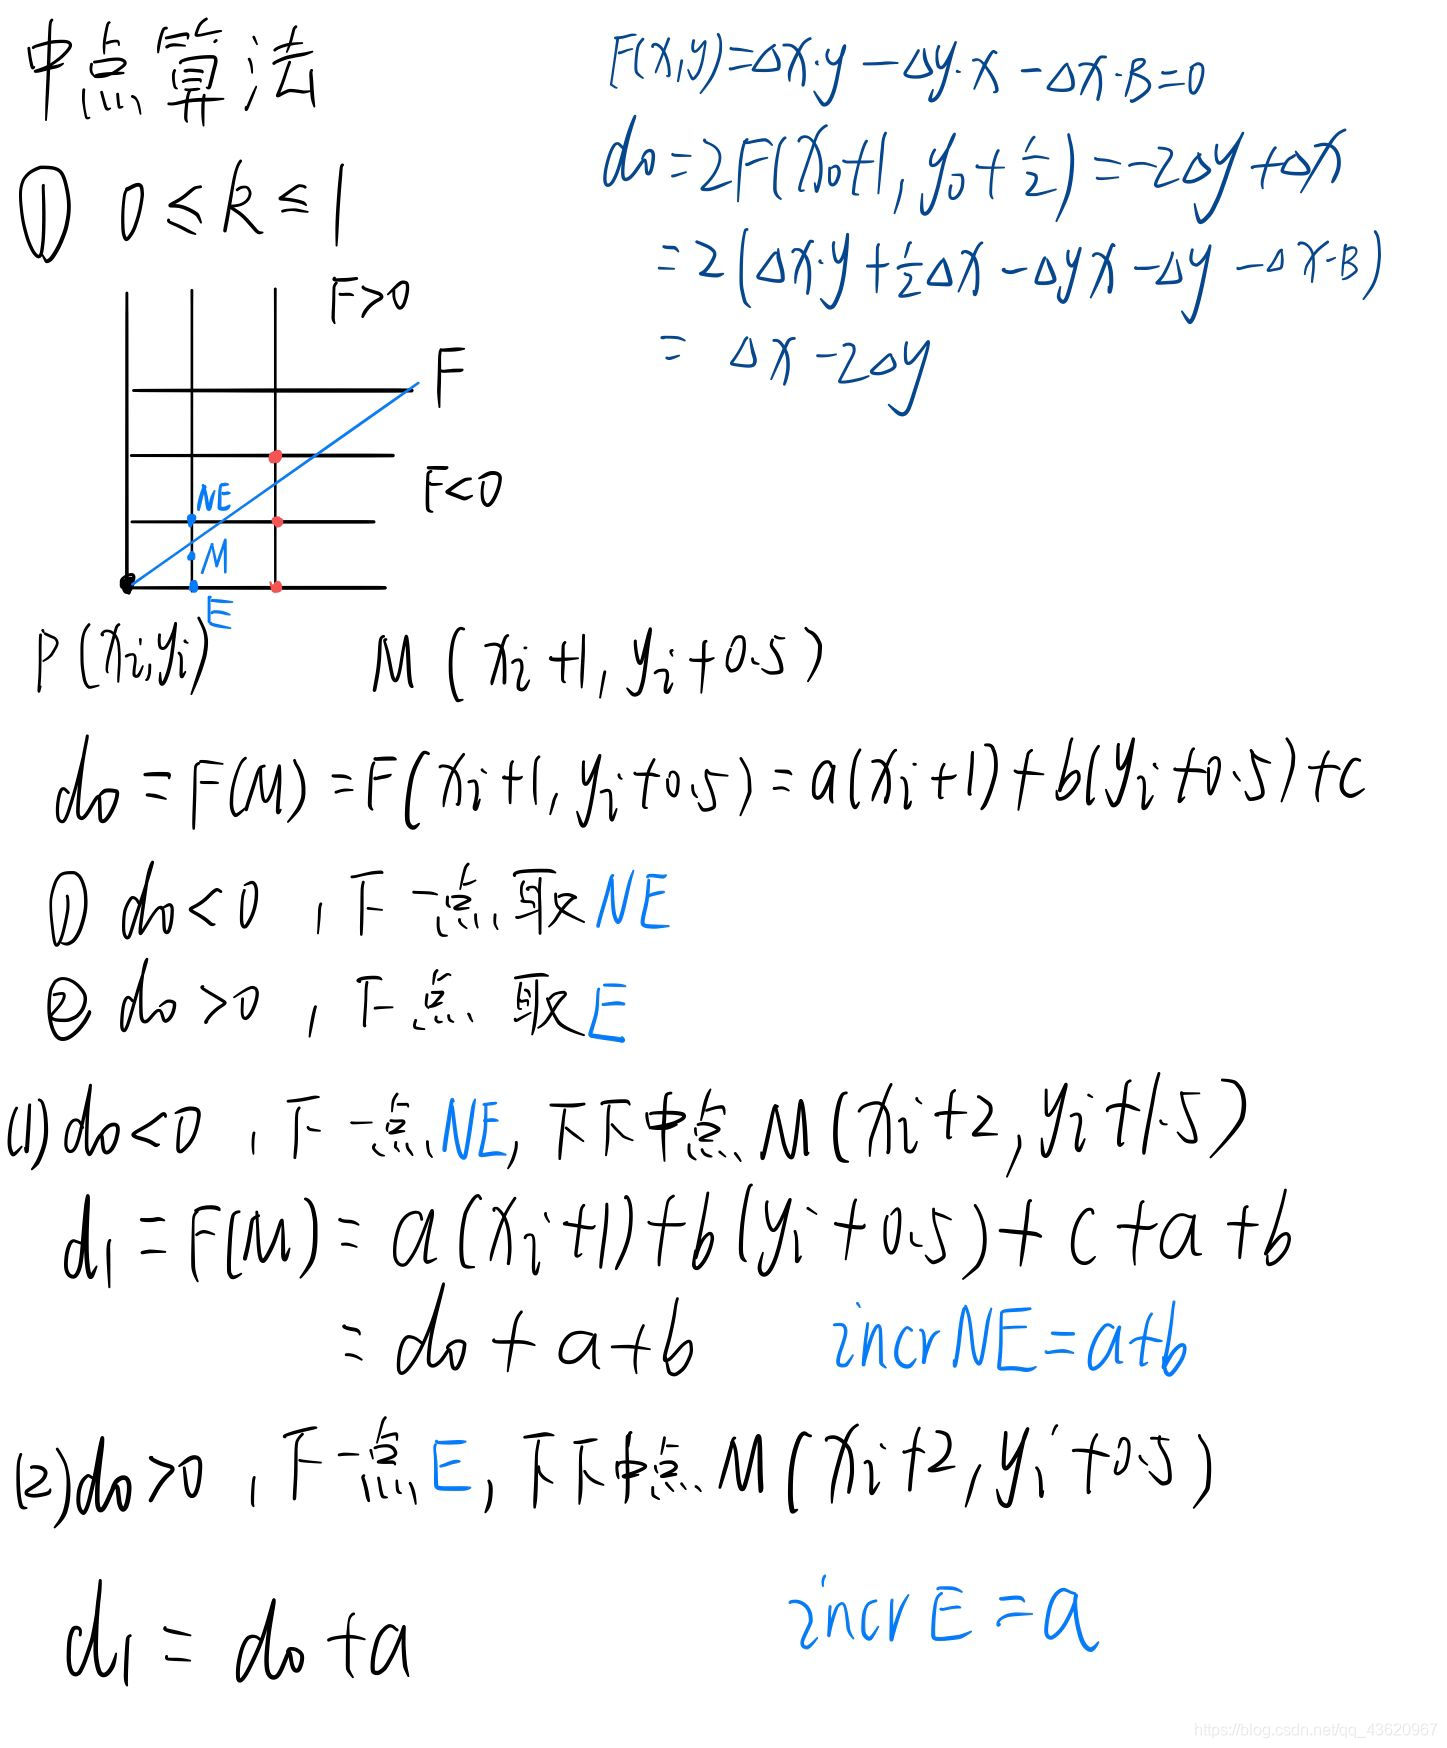 中点算法
① 0 ≤ k ≤ 1
F(x,y)=Δx·y-Δy·x-Δx·B=0
d₀=2F(x₀+1, y₀+½)=-2Δy+Δx
=2(Δx·y+½Δx-Δyx-Δy-Δx·B)
= Δx-2Δy
F>0
F
F<0
NE
M
E
P(xᵢ,yᵢ) M(xᵢ+1, yᵢ+0.5)
d₀=F(M)=F(xᵢ+1, yᵢ+0.5)=a(xᵢ+1)+b(yᵢ+0.5)+c
① d₀<0, 下一点取NE
② d₀>0, 下一点取E
(1) d₀<0, 下一点NE, 下下中点M(xᵢ+2, yᵢ+1.5)
d₁=F(M)=a(xᵢ+1)+b(yᵢ+0.5)+c+a+b
=d₀+a+b incrNE=a+b
(2) d₀>0, 下一点E, 下下中点M(xᵢ+2, yᵢ+0.5)
d₁=d₀+a incrE=a
https://blog.csdn.net/qq_43620967